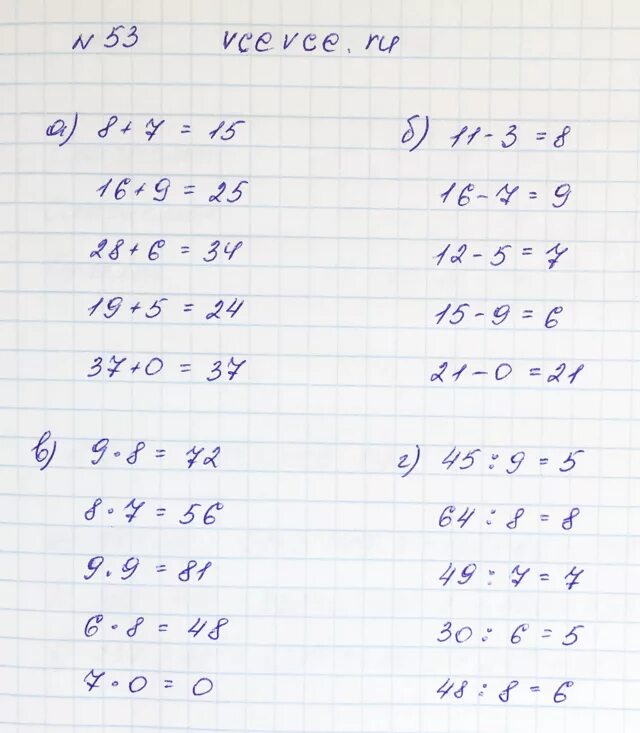 N 53 vcevce.ru
а) 8 + 7 = 15
16 + 9 = 25
28 + 6 = 34
19 + 5 = 24
37 + 0 = 37
б) 11 - 3 = 8
16 - 7 = 9
12 - 5 = 7
15 - 9 = 6
21 - 0 = 21
в) 9 · 8 = 72
8 · 7 = 56
9 . 9 = 81
6 · 8 = 48
7 · 0 = 0
г) 45 : 9 = 5
64 : 8 = 8
49 : 7 = 7
30 : 6 = 5
48 : 8 = 6